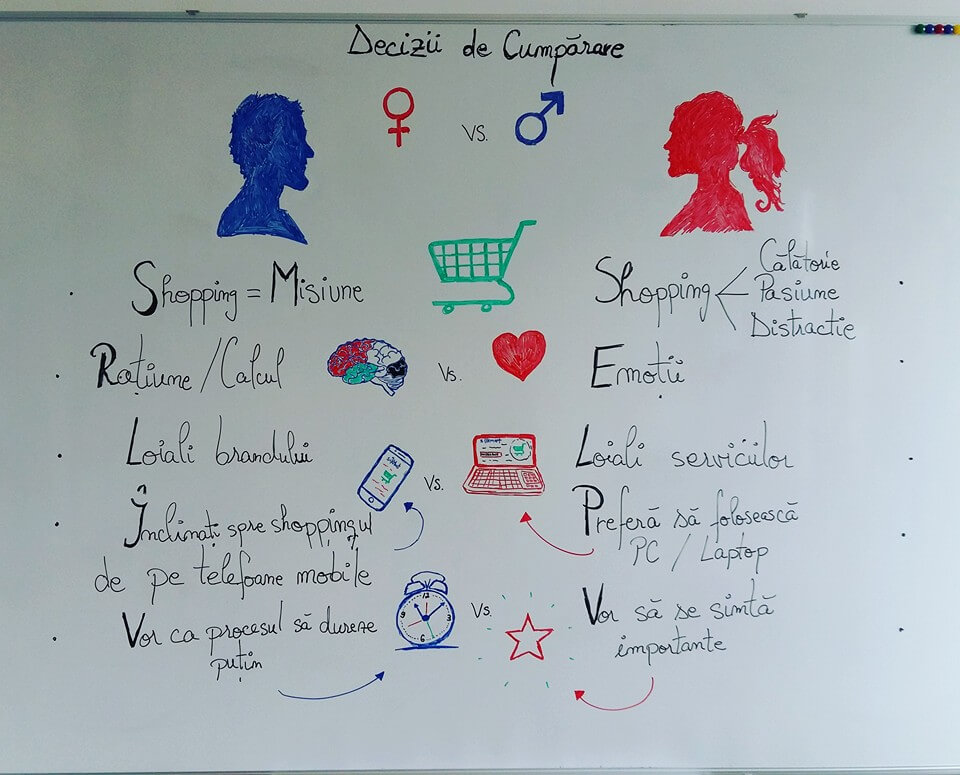 Decizii de Cumpărare
VS.
Shopping = Misiune
Shopping
Călătorie
Pasiune
Distractie
Rațiune / Calcul
Vs.
Emoții
Loiali brandului
Vs.
Loiali serviciilor
Înclinați spre shoppingul
de pe telefoane mobile
Preferă să folosească
PC / Laptop
Vor ca procesul să dureze
puțin
12
3
6
9
Vs.
Vor să se simtă
importante